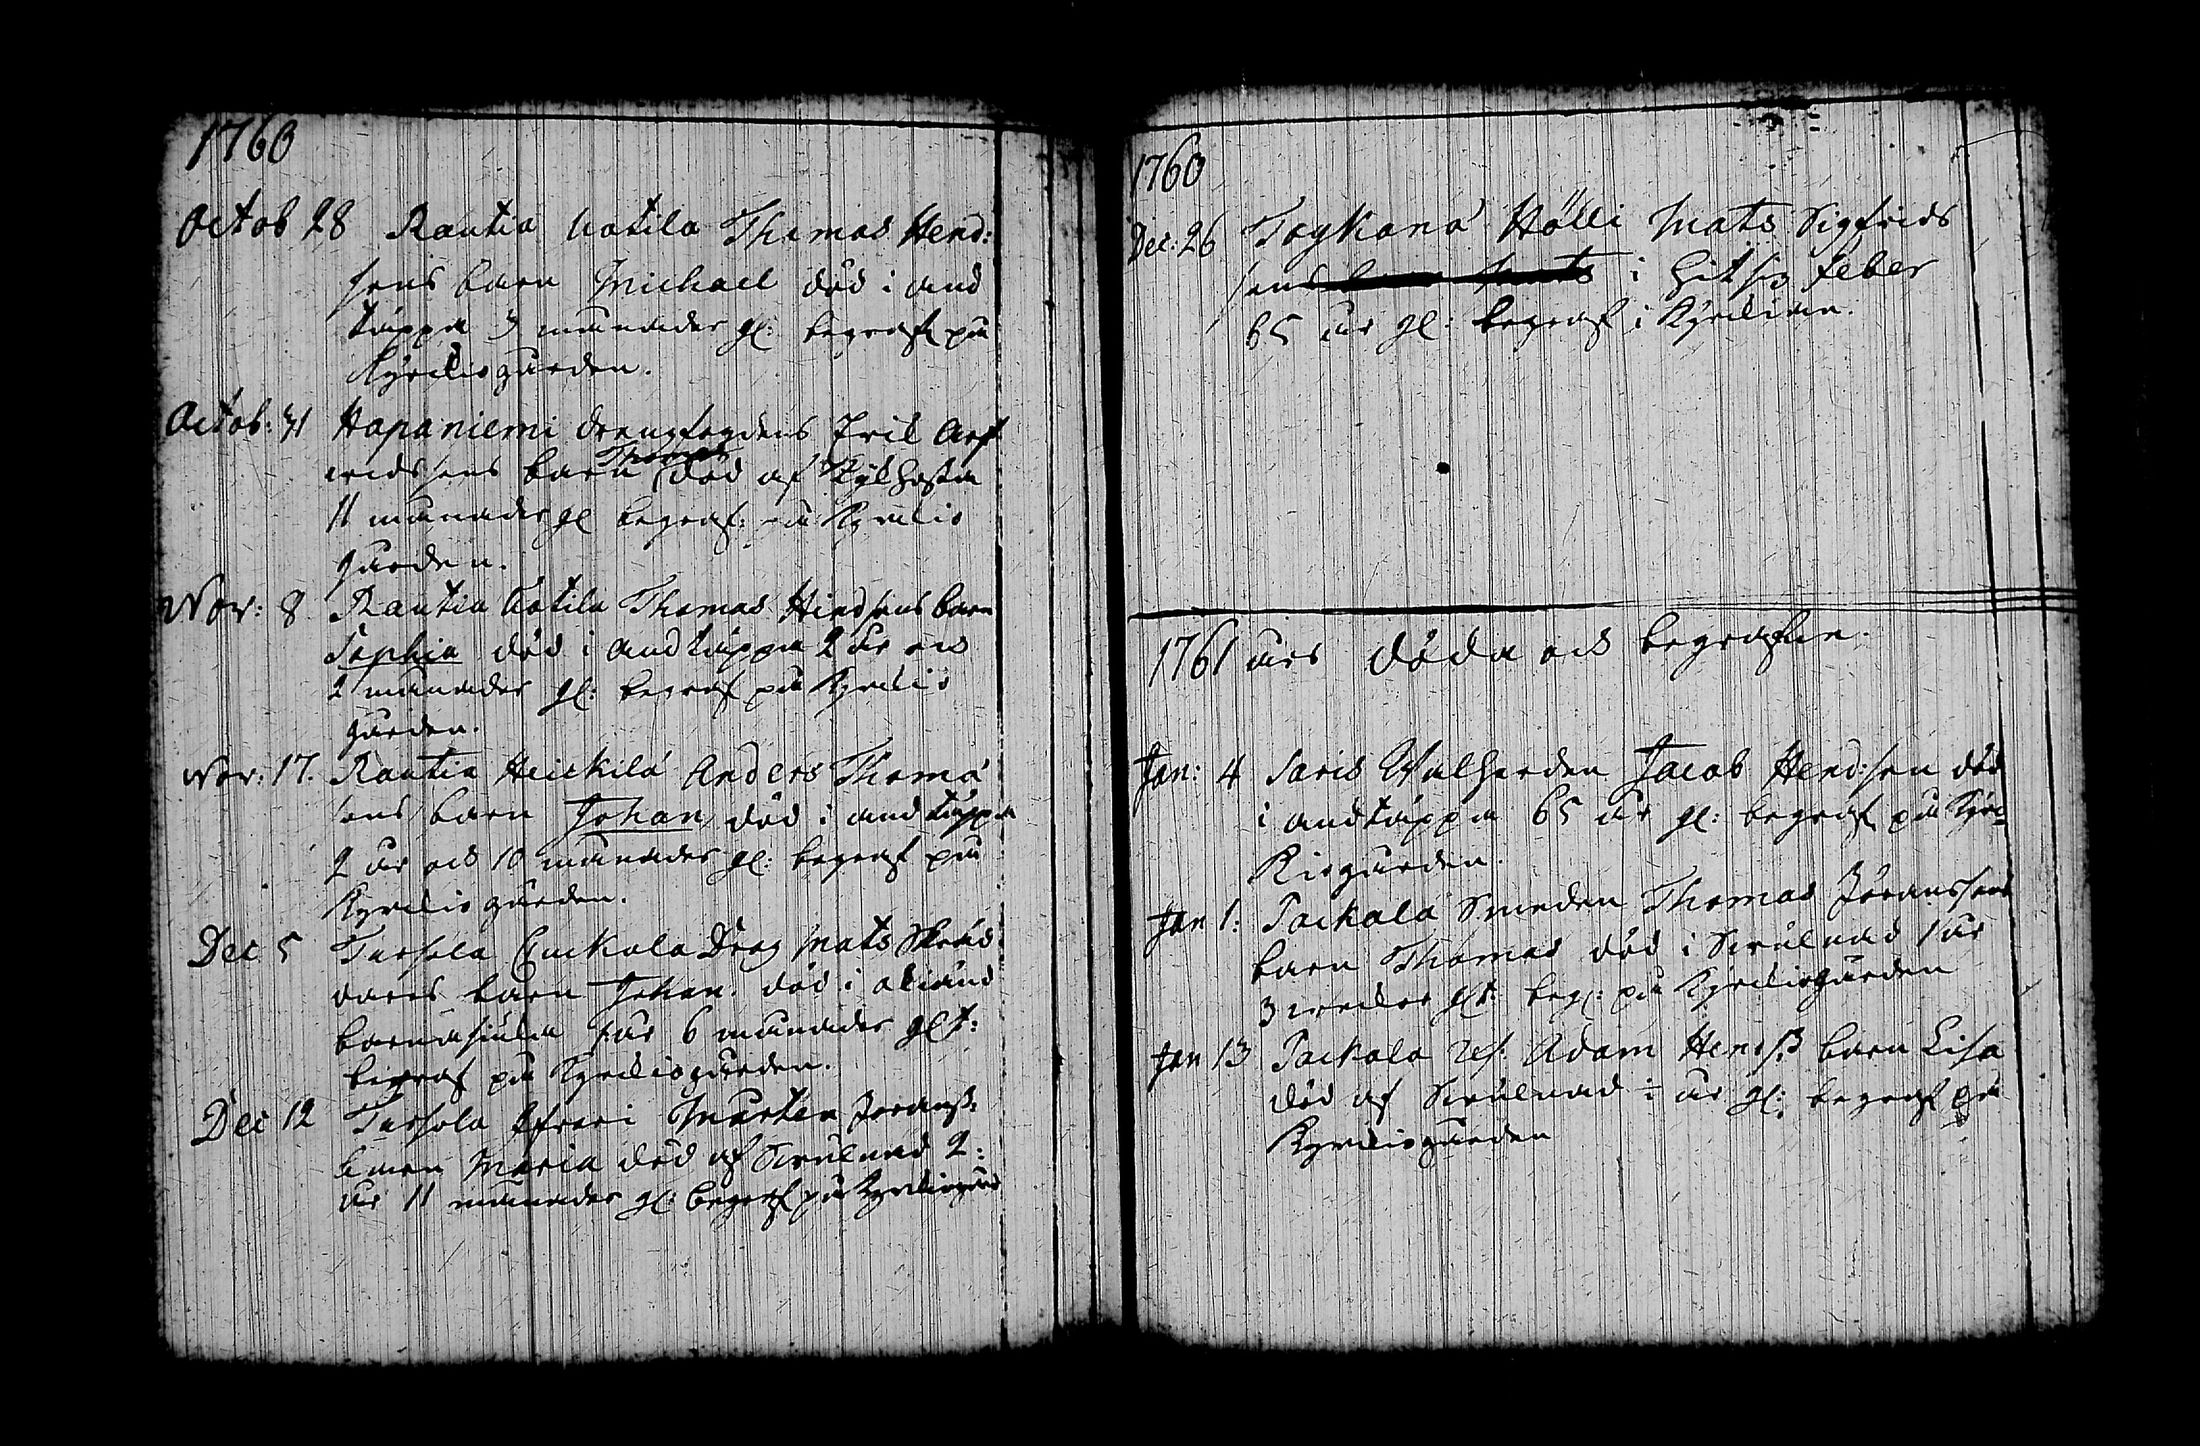 1760
Octob 28 Rautia Uotila Thomas Hend:
sons barn Michael död i and
täppa 3 månader gl: begraf på
Kyrckiogården.
Octob: 31 Hapaniemi drengfogdens Eric Arf
widssons barn Thomas död af Kykhosta
11 månader gl begraf: på Kyrckio
gården.
Nov: 8 Rautia Uotila Thomas Hindsons barn
Sophia död i andtäppa 2 år och
2 månader gl: begraf på Kyrckio
gården.
Nov: 17. Rautia Heickilä Anders Thomä
sons barn Johan död i andtäppa
2 år och 10 månader gl: begraf på
Kyrckiogården.
Dec 5 Tursola Drag Mats Skräd
dares barn Johan. död i okiänd
barnasiuka 1 år 6 månader glt:
begraf på Kyrckiogården.
Dec 12 Tursola Mårten Joranss:
Maria död af Strålnad 2:
år 11 månader gl: begraf på Kyrckiogård
1760
Dec: 26 Toykana Hölli Mats Sigfrids
sons i hitsig feber
65 år gl: begraf i Kyrckian.
1761 års döda och begrafne.
Jan: 4 Saris Walherden Jacob Hend:son död
i andtäppa 65 år gl: begraf på Kyrc=
kiogården.
Jan 1: Packala Smeden Thomas Jöranssons
barn Thomas död i Strålnad 1 år
3 weckor glt: begr: på Kyrckiogården
Jan 13 Packala Adam Hendss barn Lisa
död af Strålnad år gl: begraf på
Kyrckiogården